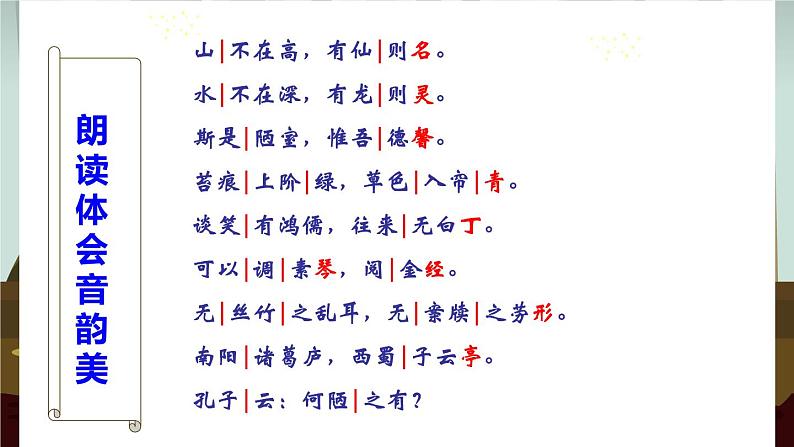 朗读体会音韵美
山|不在高，有仙|则名。
水|不在深，有龙|则灵。
斯是|陋室，惟吾|德馨。
苔痕|上阶|绿，草色|入帘|青。
谈笑|有鸿儒，往来|无白丁。
可以|调|素琴，阅|金经。
无|丝竹|之乱耳，无|案牍|之劳形。
南阳|诸葛庐，西蜀|子云亭。
孔子|云：何陋|之有？